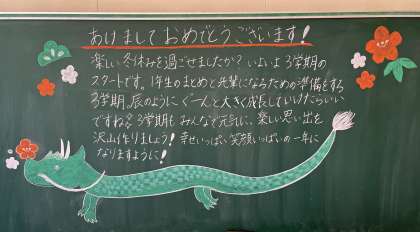 あけまして おめでとうございます!
楽しい冬休みを過ごせましたか? いよいよ3学期の
スタートです。1年生のまとめと先輩になるための準備をする
3学期。辰のように ぐーんと大きく成長していけたらいい
ですね。3学期も みんなで元気に、楽しい思い出を
沢山作りましょう! 幸せいっぱい、笑顔いっぱいの一年に
なりますように!